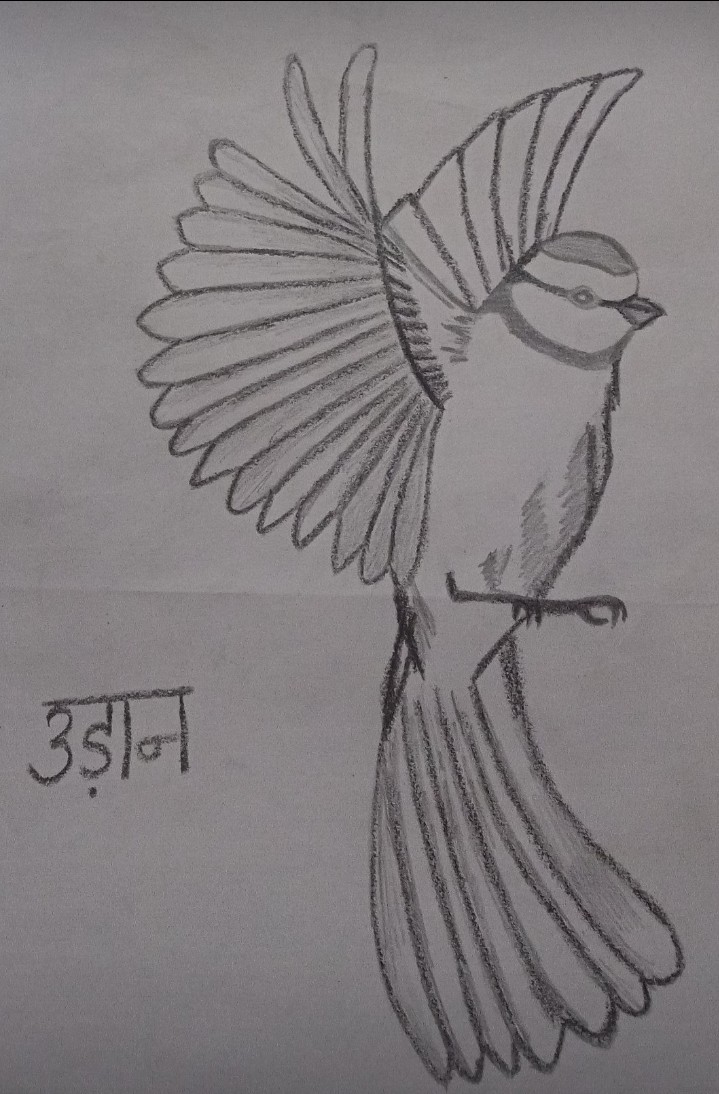 उड़ान